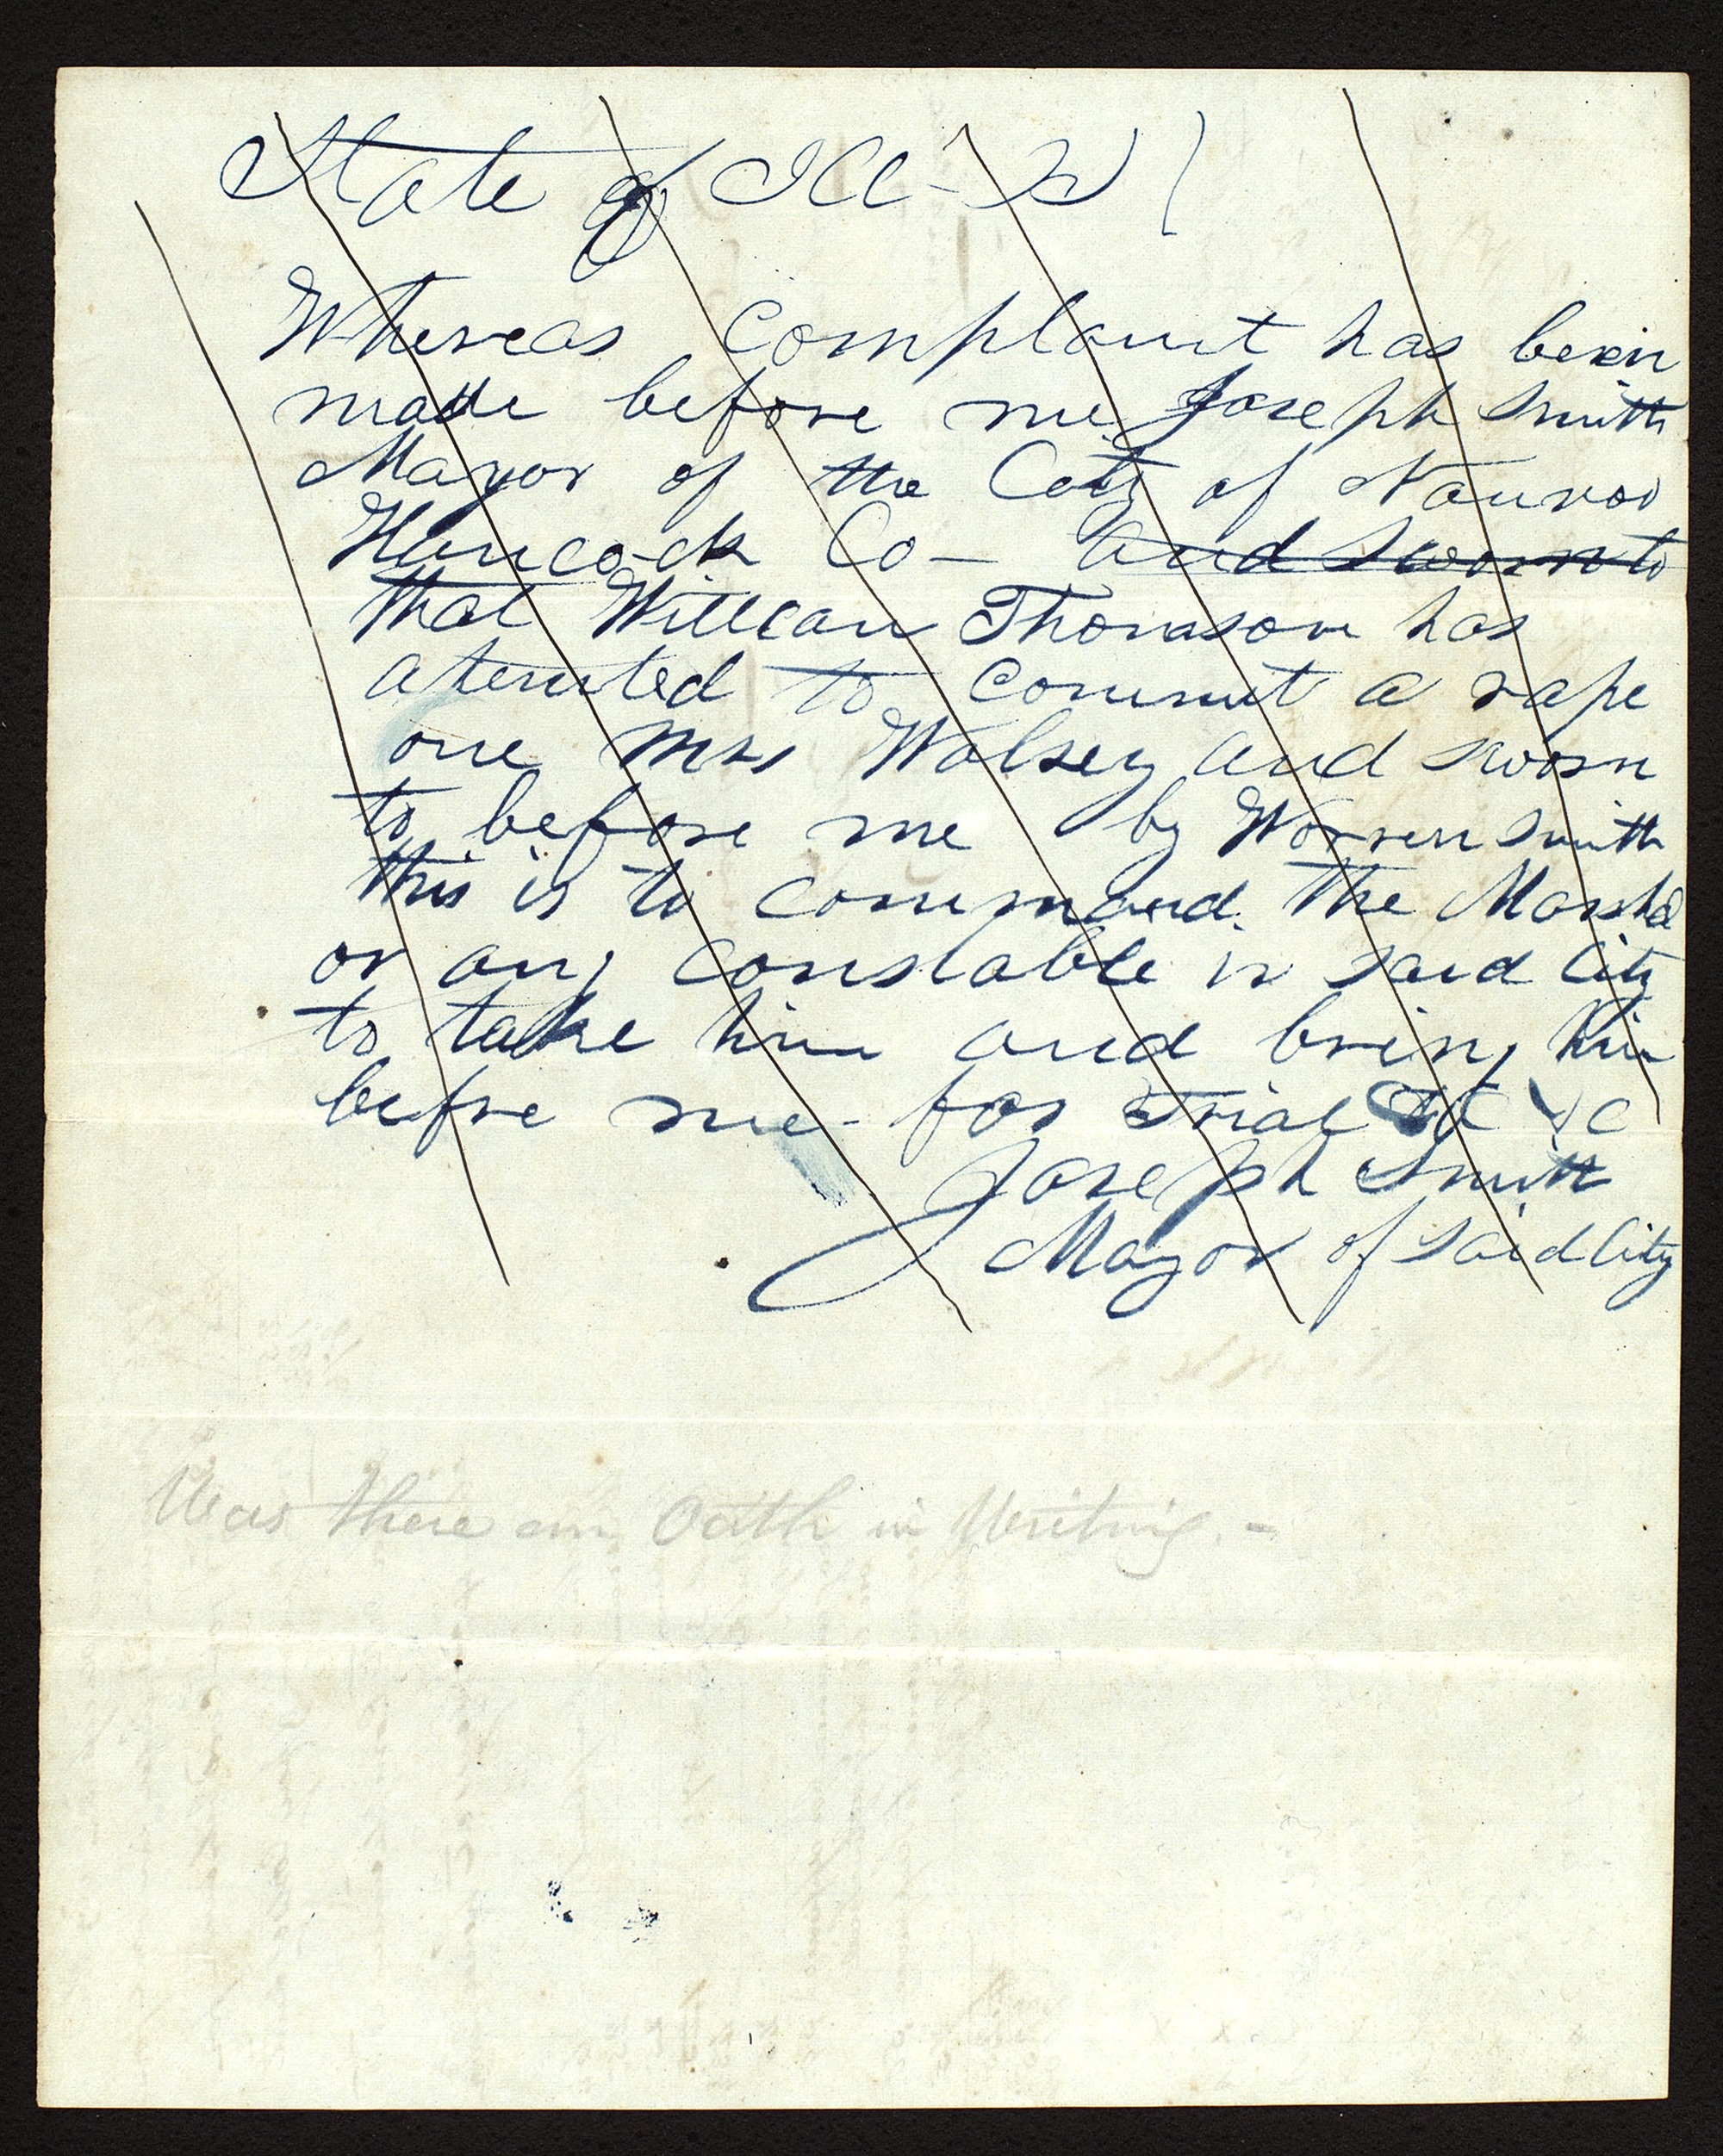 State of Ill- ss )
Whereas Complaint has been
made before me Joseph Smith
Mayor of the City of Nauvoo
Hancock Co— and Sworn to
that William Thomason has
atemted to commit a rape
one Mrs Wolsey and sworn
to before me by Worren Smith
this is to command. the Marshal
or any constable in said City
to take him and bring him
before me- for trial &C
Joseph Smith
Mayor of said City
Was there an Oath in Writing.-